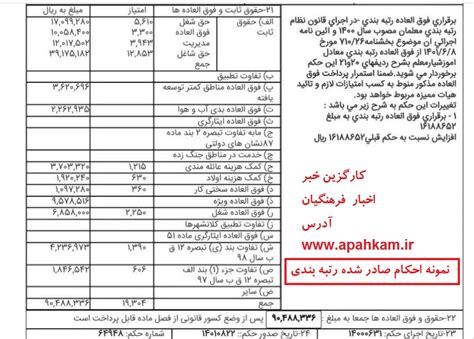 برقراری فوق العاده رتبه بندی -در اجرای قانون نظام
رتبه بندی معلمان مصوب سال ۱۴۰۰ و آئین نامه
اجرائی ان موضوع بخشنامه۷۱۰/۲۶ مورخ
۱۴۰۱/۶/۸ از فوق العاده رتبه بندی معادل
اموزشیارمعلم بشرح ردیفهای ۲۰و۲۱ این حکم
برخوردار می شوید.ضمنا استمرار پرداخت فوق
العاده مذکور منوط به کسب امتیازات لازم و تائید
هیات ممیزه مربوط خواهد بود.
تغییرات این حکم به شرح زیر می باشد :
۱ - برقراری فوق العاده رتبه بندی به مبلغ
۱۶۱۸۸۶۵۲
افزایش نسبت به حکم قبلی۱۶۱۸۸۶۵۲ ریال
کارگزین خبر
اخبار فرهنگیان
آدرس
www.apahkam.ir
نمونه احکام صادر شده رتبه بندی
۲۱-حقوق ثابت و فوق العاده ها امتیاز مبلغ به ریال
الف) حقوق ثابت حق شغل ۵,۶۱۰ ۱۷,۰۹۹,۲۸۰
حق شاغل ۳,۳۰۰ ۱۰,۰۵۸,۴۰۰
مدیریت ۳,۹۴۳ ۱۲,۰۱۷,۵۰۲
جمع ۱۲,۸۵۳ ۳۹,۱۷۵,۱۸۲
ب) تفاوت تطبیق
پ) فوق العاده مناطق کمتر توسعه یافته ۳,۶۲۰,۶۹۶
ت) فوق العاده بدی آب و هوا ۲,۲۶۲,۹۳۵
ث) فوق العاده ایثارگری
ج) مابه تفاوت تبصره ۲ بند ماده ۸۷نشان های دولتی
چ) خدمت در مناطق جنگ زده
ح) کمک هزینه عائله مندی ۱,۲۱۵ ۳,۷۰۳,۳۲۰
خ) کمک هزینه اولاد ۶۳۰ ۱,۹۲۰,۲۴۰
د) فوق العاده سختی کار ۳۶۰ ۱,۰۹۷,۲۸۰
ذ) فوق العاده ویژه ۹,۵۷۸,۵۱۶
ر) فوق العاده شغل ۲,۲۵۰ ۶,۸۵۸,۰۰۰
ژ) تفاوت تطبیق کلانشهرها
س) فوق العاده ایثارگری ماده ۵۱
ش) تفاوت بندی (تبصره ۱۲ ق ب سال ۹۸ ۱,۳۹۰ ۴,۲۳۶,۹۷۳
ص) تفاوت جزء (۱) بند الف تبصره ۱۲ ق ب سال ۹۷ ۶۰۶ ۱,۸۴۶,۵۴۲
ض) سایر
جمع ۱۹,۳۰۴ ۹۰,۴۸۸,۳۳۶
۲۲-حقوق و فوق العاده ها جمعا به مبلغ : ۹۰,۴۸۸,۳۳۶ پس از وضع کسور قانونی از فصول ماده قابل پرداخت است
۲۳-تاریخ اجرای حکم: ۱۴۰۰۰۶۳۱ ۲۴-تاریخ صدور حکم: ۱۴۰۱۰۸۲۲ ۲۵-شماره حکم: ۶۴۹۴۸